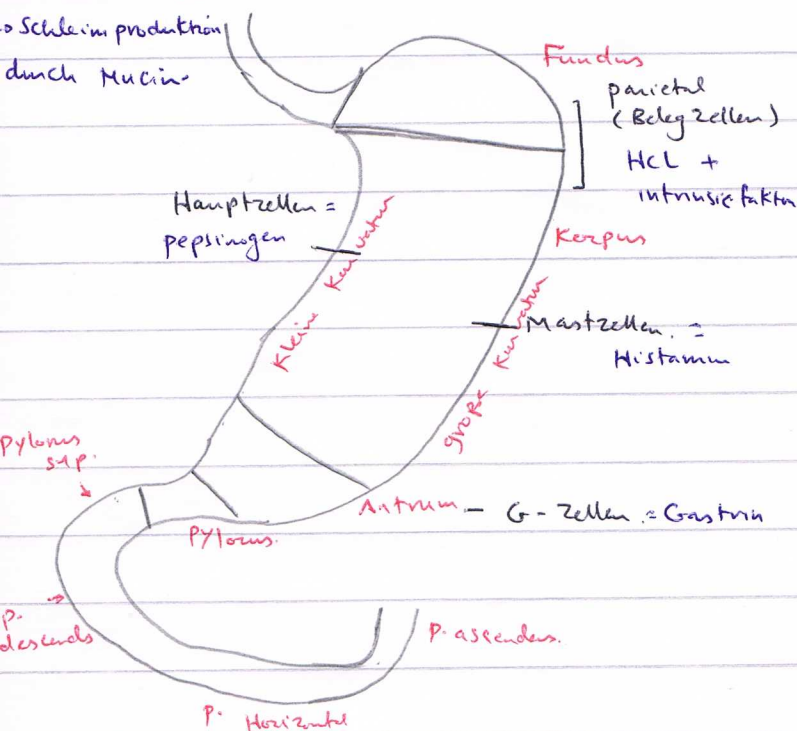 Schleimproduktion
durch Mucin
Fundus
parietal
(Belegzellen)
HCL +
intrinsic faktor
Hauptzellen =
pepsinogen
Kleine Kurvatur
Korpus
Mastzellen. =
Histamin
große Kurvatur
Pylorus
sup.
Antrum - G-Zellen = Gastrin
PYlorus.
P.
descends
P. ascendens.
P. Horizontal